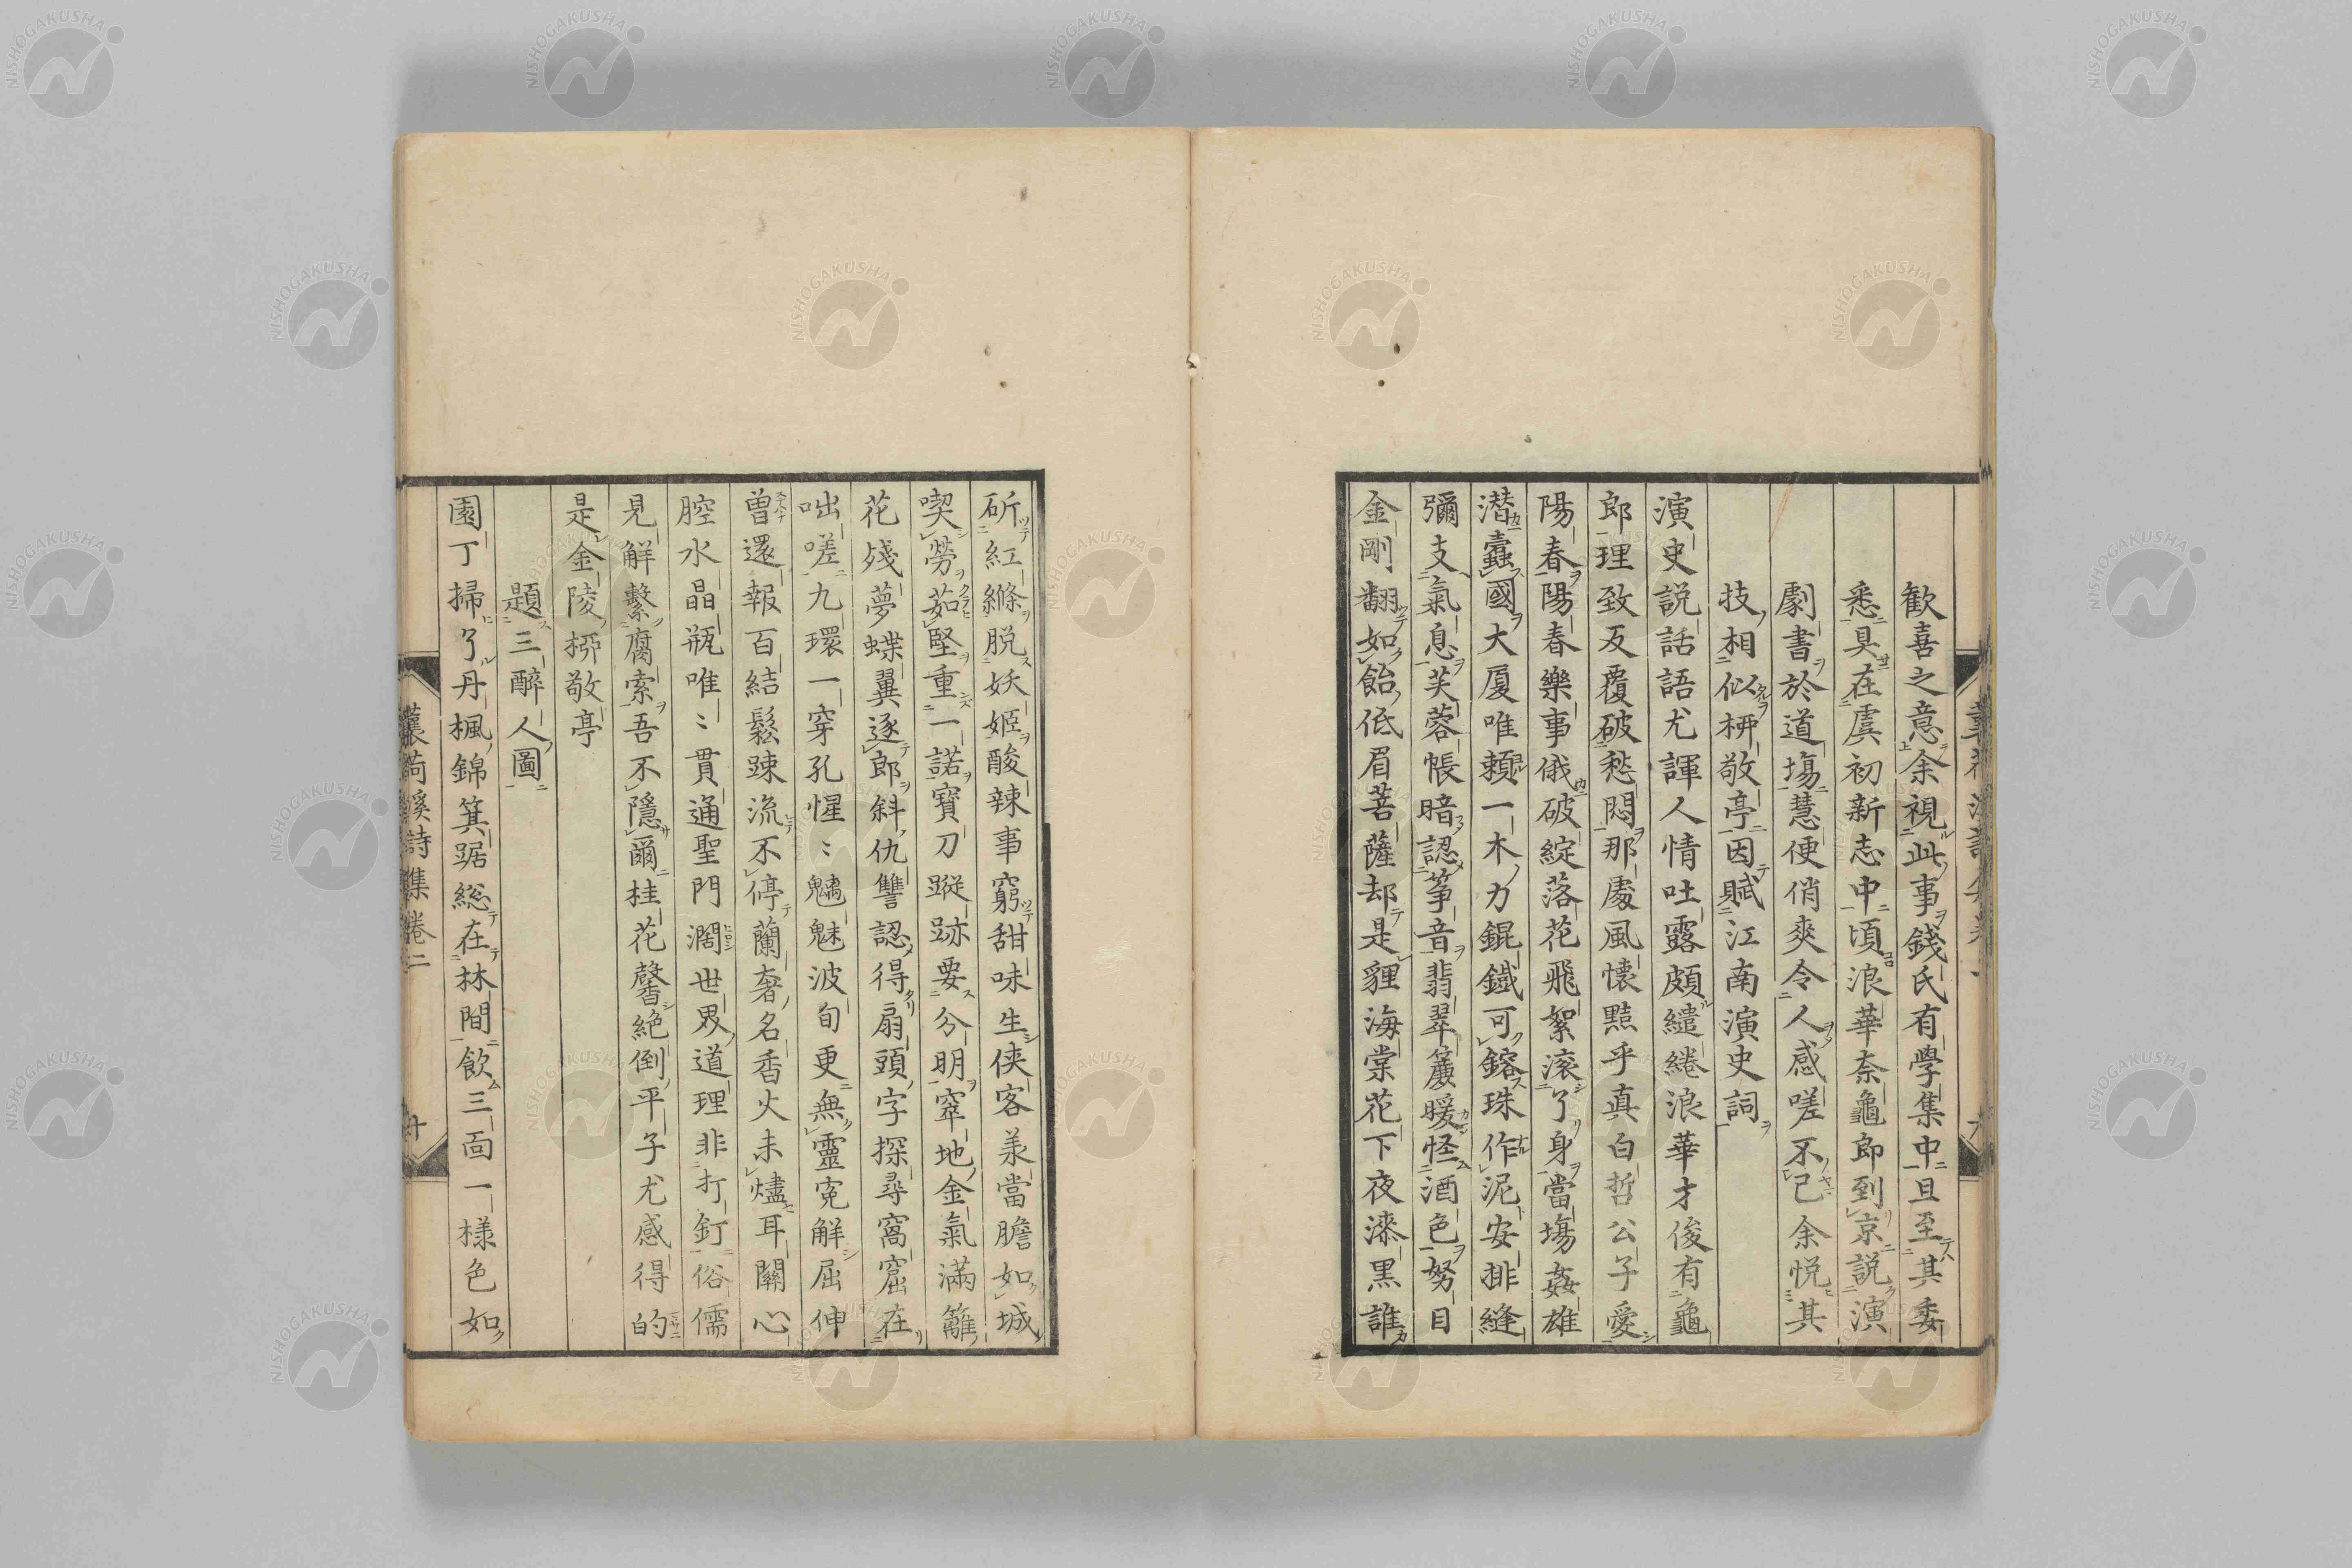 歡喜之意余視此事錢氏有學集中且至其委
悉具在虞初新志中頃浪華奈龜郎到京説演
劇書於道塲慧便俏爽令人感嗟不已余悦其
技相似柳敬亭因賦江南演史詞
演史説話語尤諢人情吐露頗繾綣浪華才俊有龜
郎理致反覆破愁悶那處風懷點乎真白晢公子愛
陽春陽春樂事俄破綻落花飛絮滚了身當塲姦雄
潜蠹國大厦唯頼一木力錕鐵可鎔珠作泥安排縫
彌支氣息芙蓉帳暗認筝音翡翠簾暖怪酒色努目
金剛翻如飴低眉菩薩却是貍海棠花下夜漆黒誰
斫紅絛脱妖姬酸辣事窮甜味生侠客羕當膽如城
喫勞茹堅重一諾寶刀蹤跡要分明窣地金氣滿籬
花殘夢蝶翼逐郎斜仇讐認得扇頭字探尋窩窟在
咄嗟九環一穿孔惺〻魑魅波旬更無靈寃解屈伸
曽還報百結鬆踈流不停蘭奢名香火未燼耳關心
腔水晶瓶唯〻貫通聖門濶世界道理非打釘俗儒
見解繋腐索吾不隱爾桂花馨絶倒平子尤感得的
是金陵柳敬亭
題三醉人圖
園丁掃了丹楓錦箕踞総在林間飲三面一様色如
囊荷溪詩集卷二
十
NISHOGAKUSHA